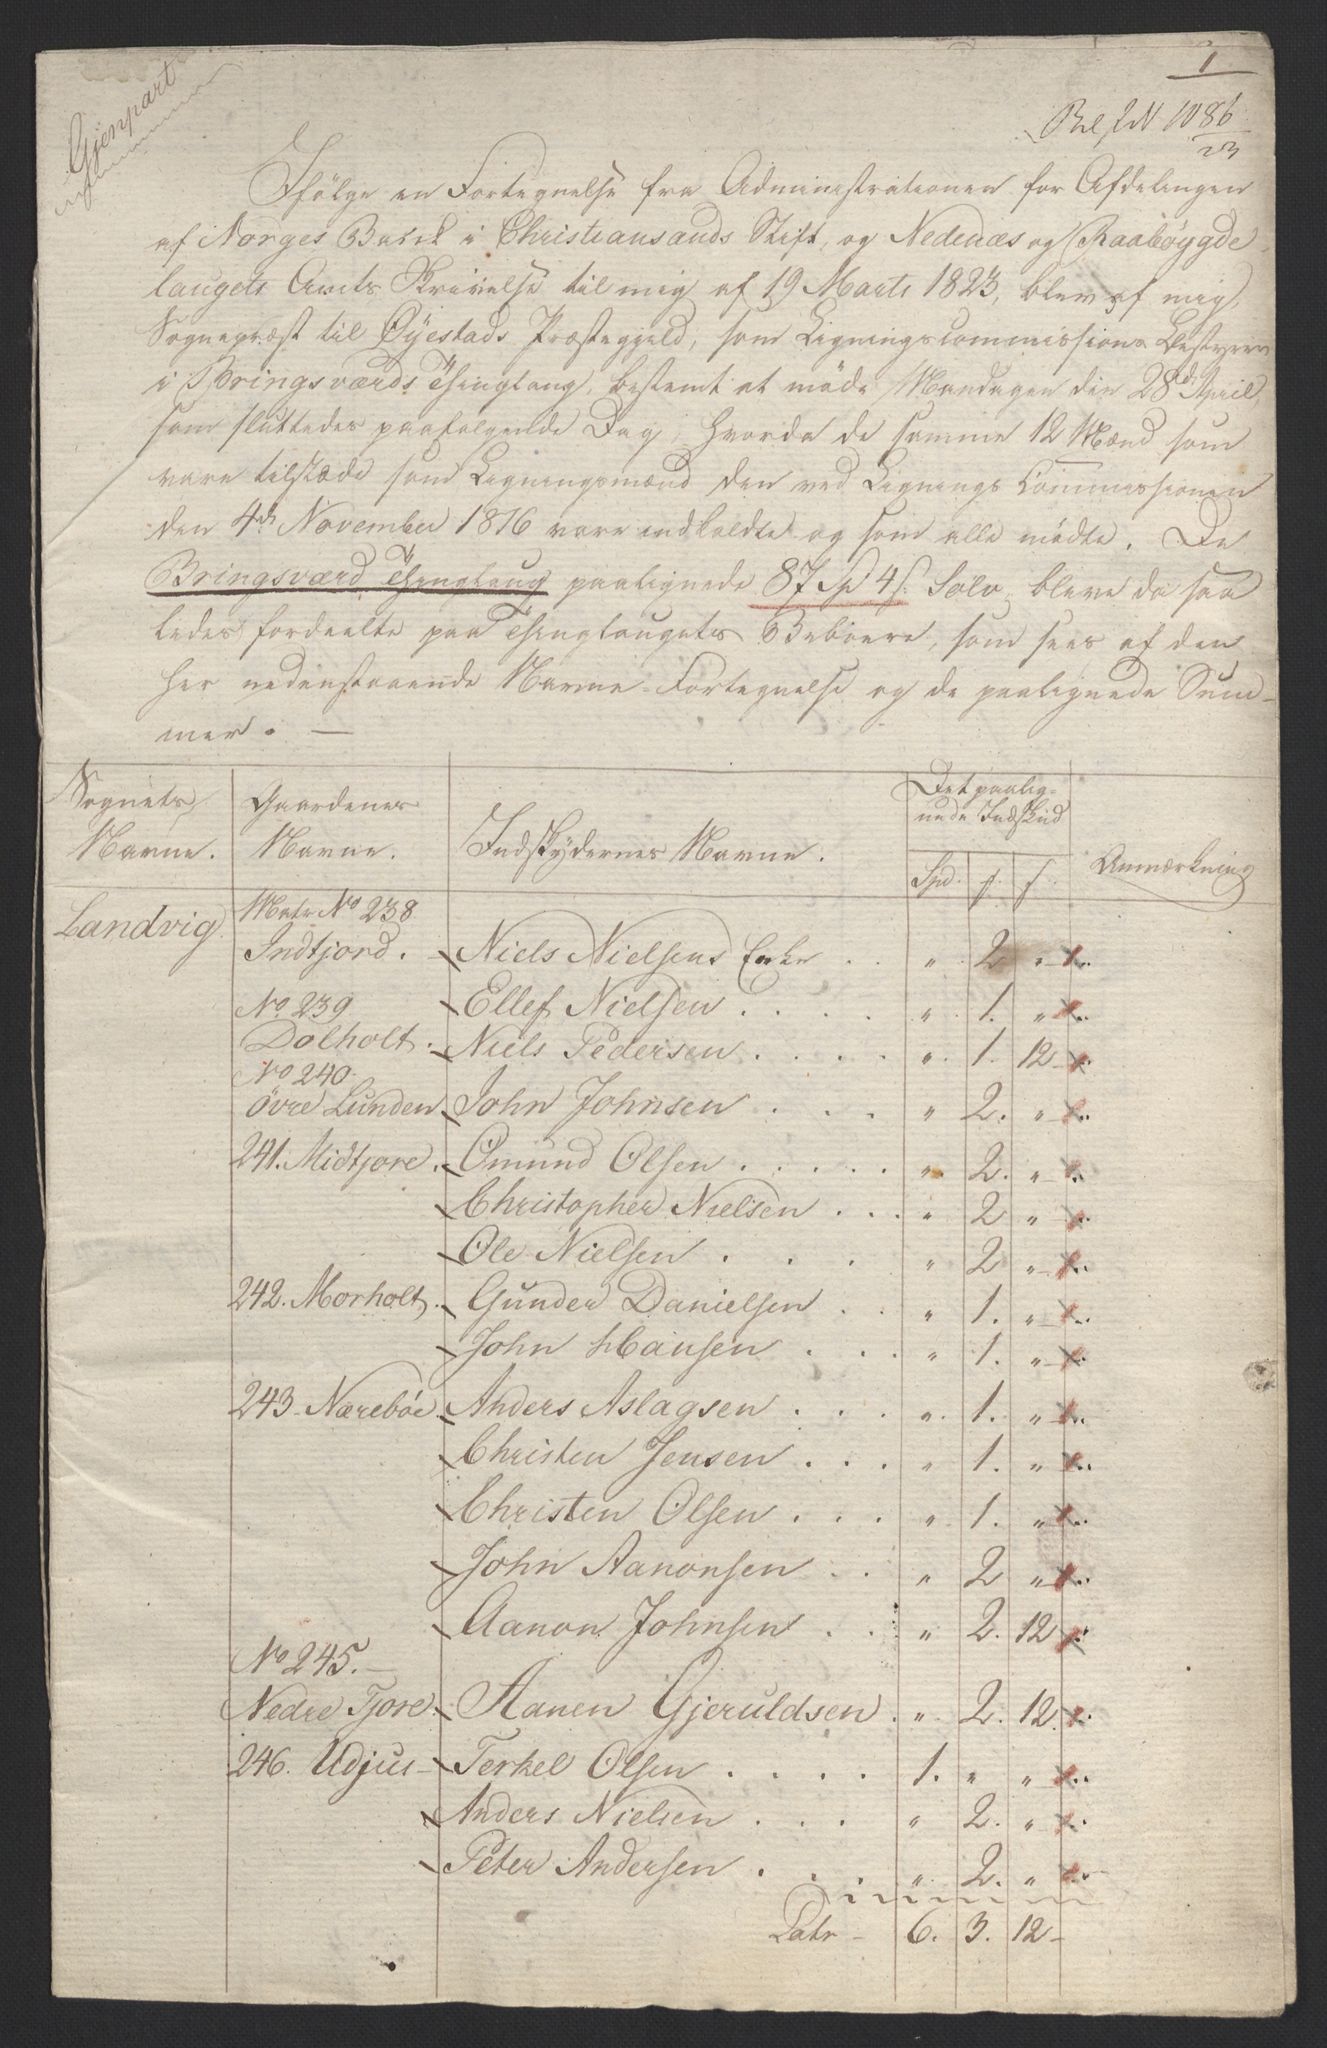 1
Gjenpart
1086
23
Ifølge en Fortegnelse fra Administrationen for Afdelingen
af Norges Bank i Christiansands Stift, og Nedenæs og Raabøygde
laugets Amts Skrivelse til mig af 19 Marts 1823, blev af mig,
Sognepræst til Øyestads Præstegjeld, som Ligningscommissions Bestyrer
i Bringsværds Thinglaug, bestemt at møde Mandagen den 28d April,
som sluttedes paafølgende Dag, hvorda de samme 12 Mænd som
vare tilstæde som Ligningsmænd den ved Lignings Commissionen
den 4de November 1816 vare indkaldte og som alle mødte. De
Bringsværd Thinglaug paalignede 87 Sp 4 s. Sølv, bleve da saa
ledes fordeelte paa Thinglaugets Beboere, som sees af den
her nedenstaaende Navne-Fortegnelse og de paalignede Sum-
mer. —
Sognets Navne. Gaardenes Navne. Indskydernes Navne. Det paalig-
nede Indskud Anmærkning
Spd.
Landvig Matr No 238
Indtjord. Niels Nielsens Enke . . " 2 "
No 239 Ellef Nielsen . . . . " 1. "
Dolholt. Niels Pedersen . . . . " 1. 12
No 240.
Övre Lunden John Johnsen . . . " 2. "
241. Midtjore. Omund Olsen . . . . . " 2. "
Christopher Nielsen . . . " 2 "
Ole Nielsen . . . " 2 "
242. Morholt. Gunder Danielsen . . " 1. "
John Hansen . . . " 1. "
243 Nærebøe. Anders Aslagsen . . . " 1. "
Christen Jensen . . . " 1. "
Christen Olsen . . . " 1. "
John Aanonsen . . " 2 "
Aanon Johnsen . . " 2. 12
No 245. —
Nedre Tjore. Aanen Gjeruldsen . " 2. 12
246. Udjus Terkel Olsen . . . . 1. " "
Anders Nielsen . . . " 2. "
Peter Andersen . . . " 2. "
Latr - 6. 3. 12 -